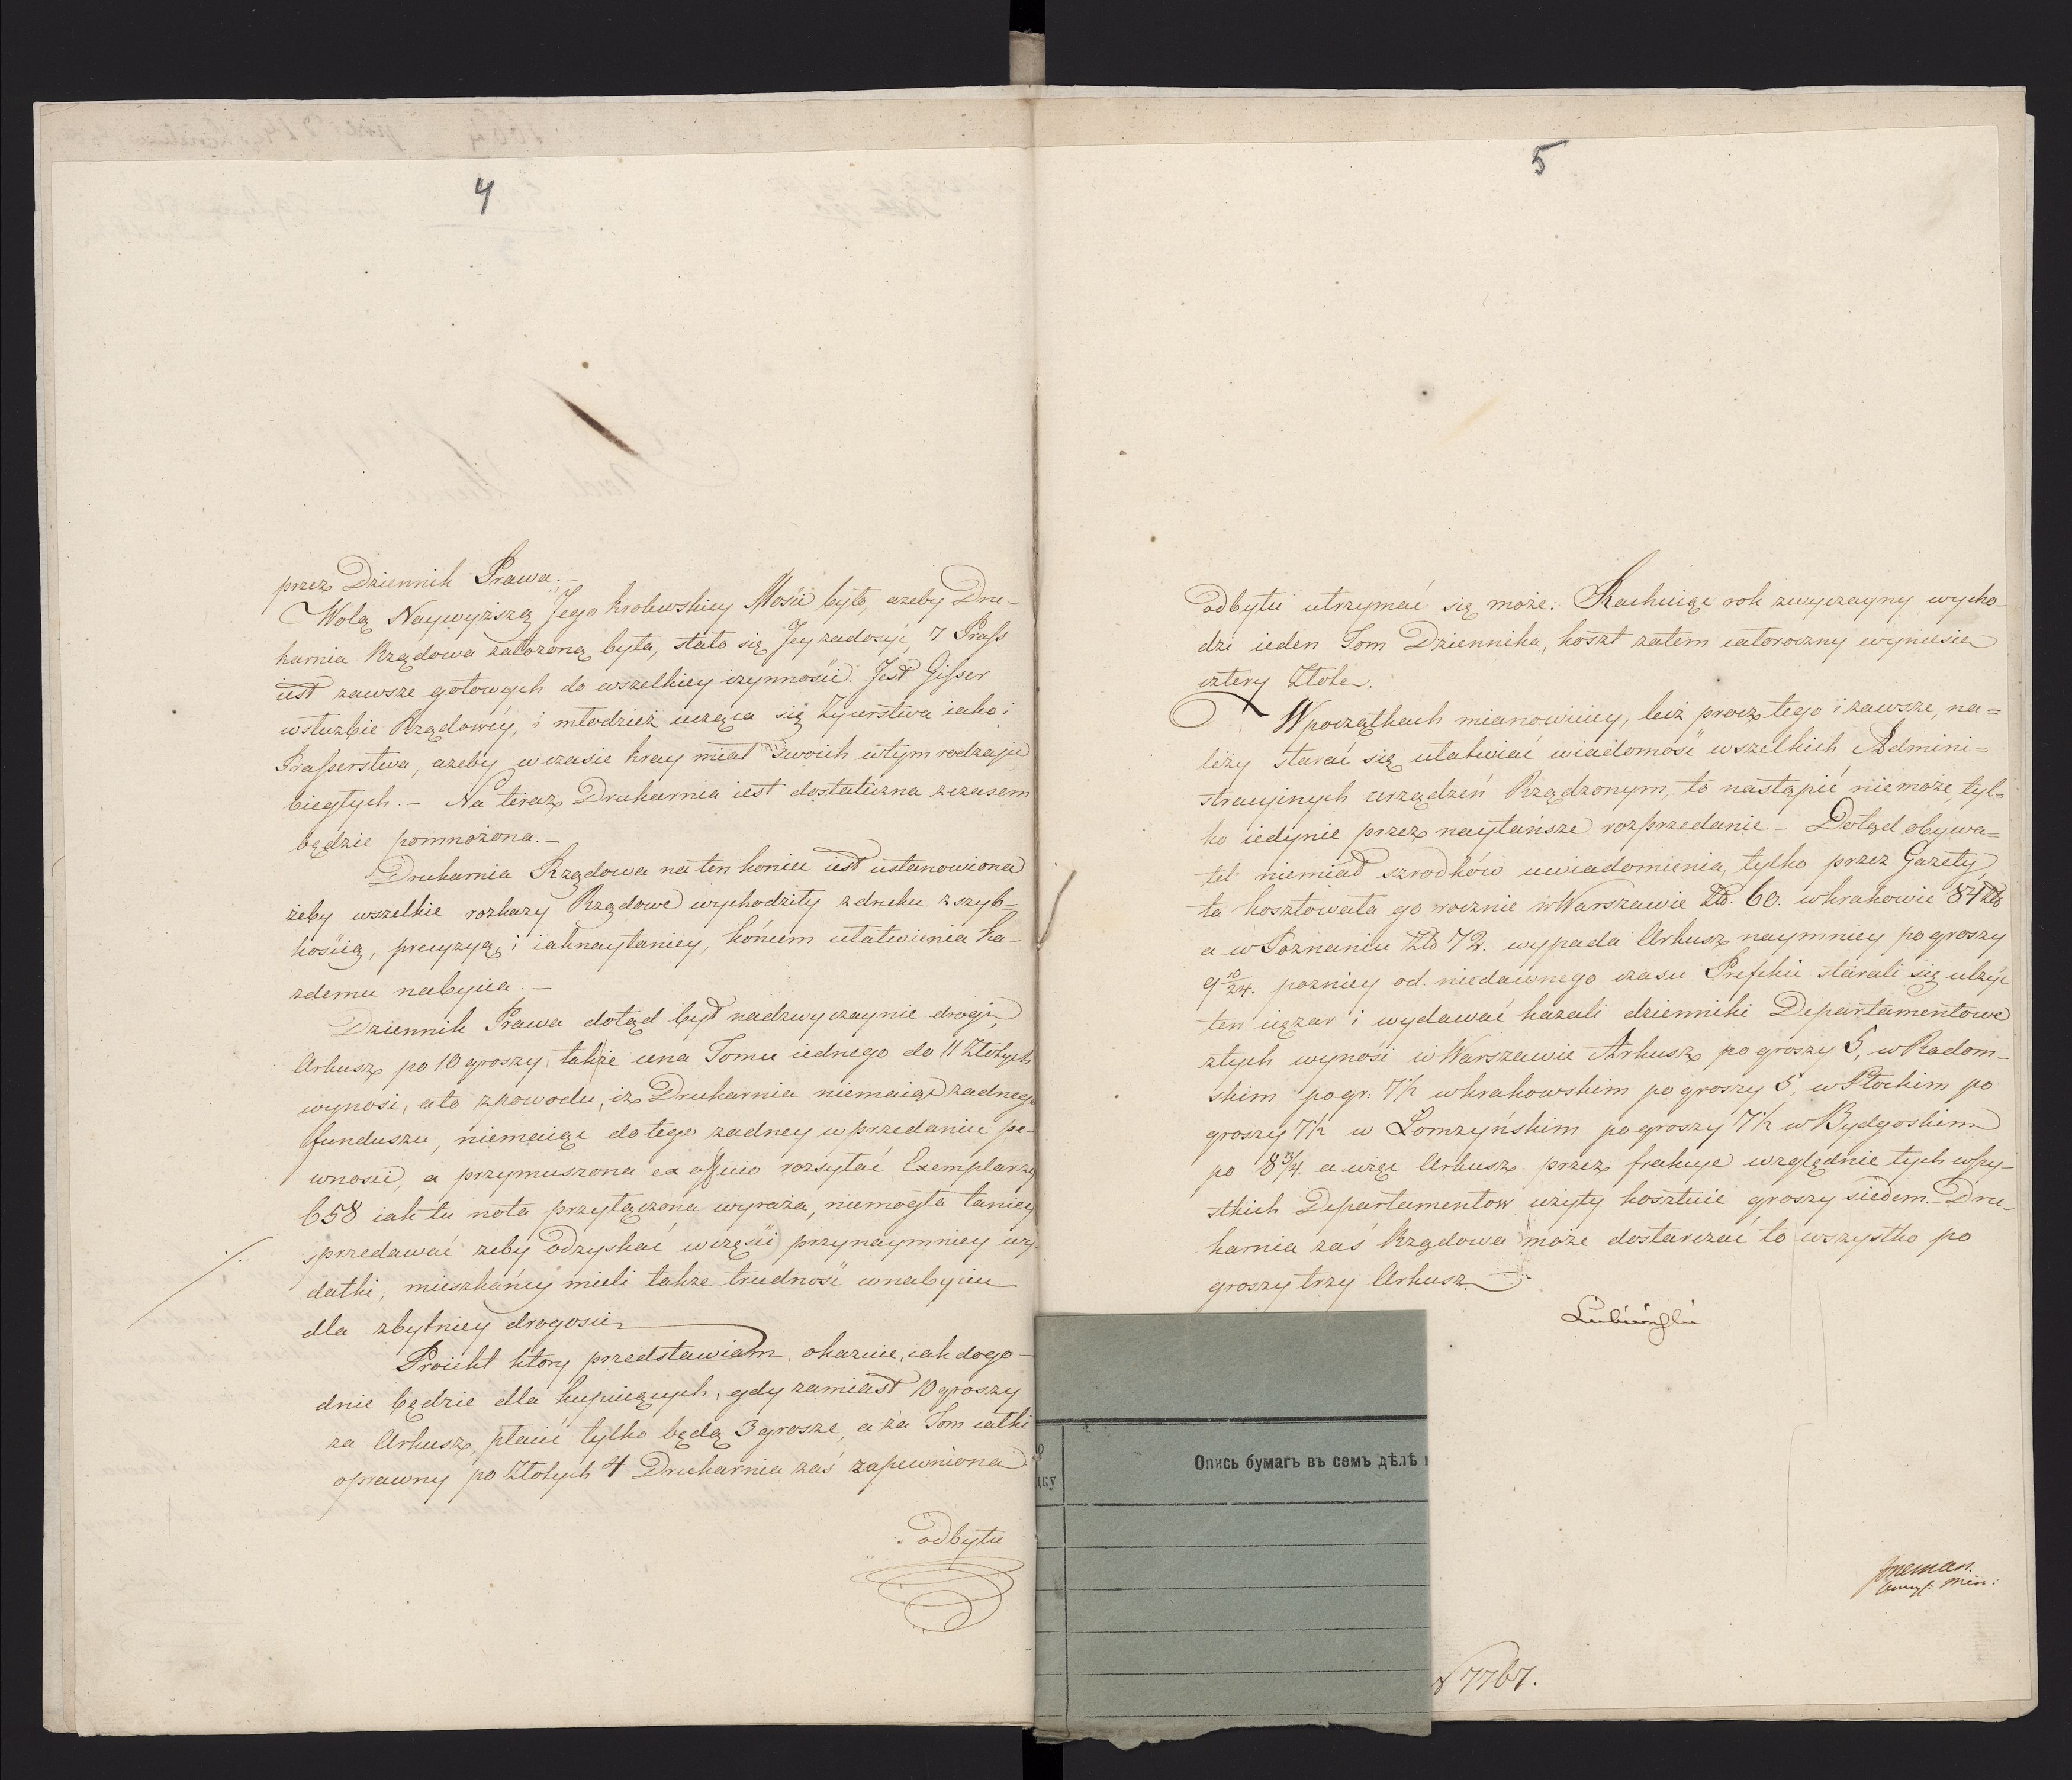 4
przez Dziennik Prawa. –
Wolą Naywyższą Jego Krolewskiey Mości było, azeby Dru-
karnia Rządowa założoną była, stało się Jey zadosyć, 7 Prass
iest zawsze gotowych do wszelkiey czynności. Jest Gisser
w służbie Rządowéy, i młodzież ucząca się Zycerstwa iako i
Prasserstwa, azeby w czasie kray miał swoich w tym rodzaju
biegłych. – Na teraz Drukarnia iest dostateczna z czasem
będzie pomnożona. –
Drukarnia Rządowa na ten koniec iest ustanowiona
żeby wszelkie rozkazy Rządowe wychodziły z druku z szyb-
kością, precyzyą i iaknaytaniey, końcem ułatwienia ka-
żdemu nabycia. –
Dziennik Prawa dotąd był nadzwyczaynie drogi,
Arkusz po 10 groszy, także cena Tomu iednego do 11 Złotych
wynosi, a to z powodu, iż Drukarnia niemaiąc żadnego
funduszu, niemaiąc do tego żadney w przedaniu pe-
wności, a przymuszona ex officio rozsyłać Exemplarzy
658 iak tu nota przyłączona wyraża, niemogła taniey
sprzedawać żeby odzyskać w części przynaymniey wy-
datki, mieszkańcy mieli także trudność w nabyciu
dla zbytniey drogości
Proiekt ktory przedstawiam, okazuie, iak dogo-
dnie będzie dla kupuiących, gdy zamiast 10 groszy
za Arkusz, płacić tylko będą 3 grosze, a za Tom całki
oprawny po Złotych 4 Drukarnia zaś zapewniona
odbytu
5
odbytu utrzymać się może. Rachuiąc rok zwyczayny wycho-
dzi ieden Tom Dziennika, koszt zatem całoroczny wyniesie
cztery Złote.
W początkach mianowiciey, lecz procz tego i zawsze, na=
leży starać się ułatwiać wiadomość wszelkich Admini=
stracyinych urządzeń Rządzonym, to nastąpić nie może, tyl=
ko iedynie przez naytańsze rozprzedanie. – Dotąd obywa=
tel niemiał szrodków uwiadomienia, tylko przez Gazety,
ta kosztowała go rocznie w Warszawie Zło. 60. w Krakowie 84 Zło
a w Poznaniu Zło 72. wypada Arkusz naymniey po groszy
9 10/24. pozniey od niedawnego czasu Prefekci starali się ulżyć
ten ciężar i wydawać kazali dzienniki Departamentowe
z tych wynosi w Warszawie Arkusz po groszy 5, w Radom-
skim po gr: 7½ w Krakowskim po groszy 5, w Płockim po
groszy 7½ w Łomzyńskim po groszy 7½ w Bydgoskim
po 8 3/4. a więc Arkusz przez frakcye względnie tych wszy-
stkich Departamentow użyty kosztuie groszy siedem. Dru-
karnia zaś Rządowa może dostarczać to wszystko po
groszy trzy Arkusz.
Łubieński
Опись бумагъ въ семъ дѣлѣ
N 7767.